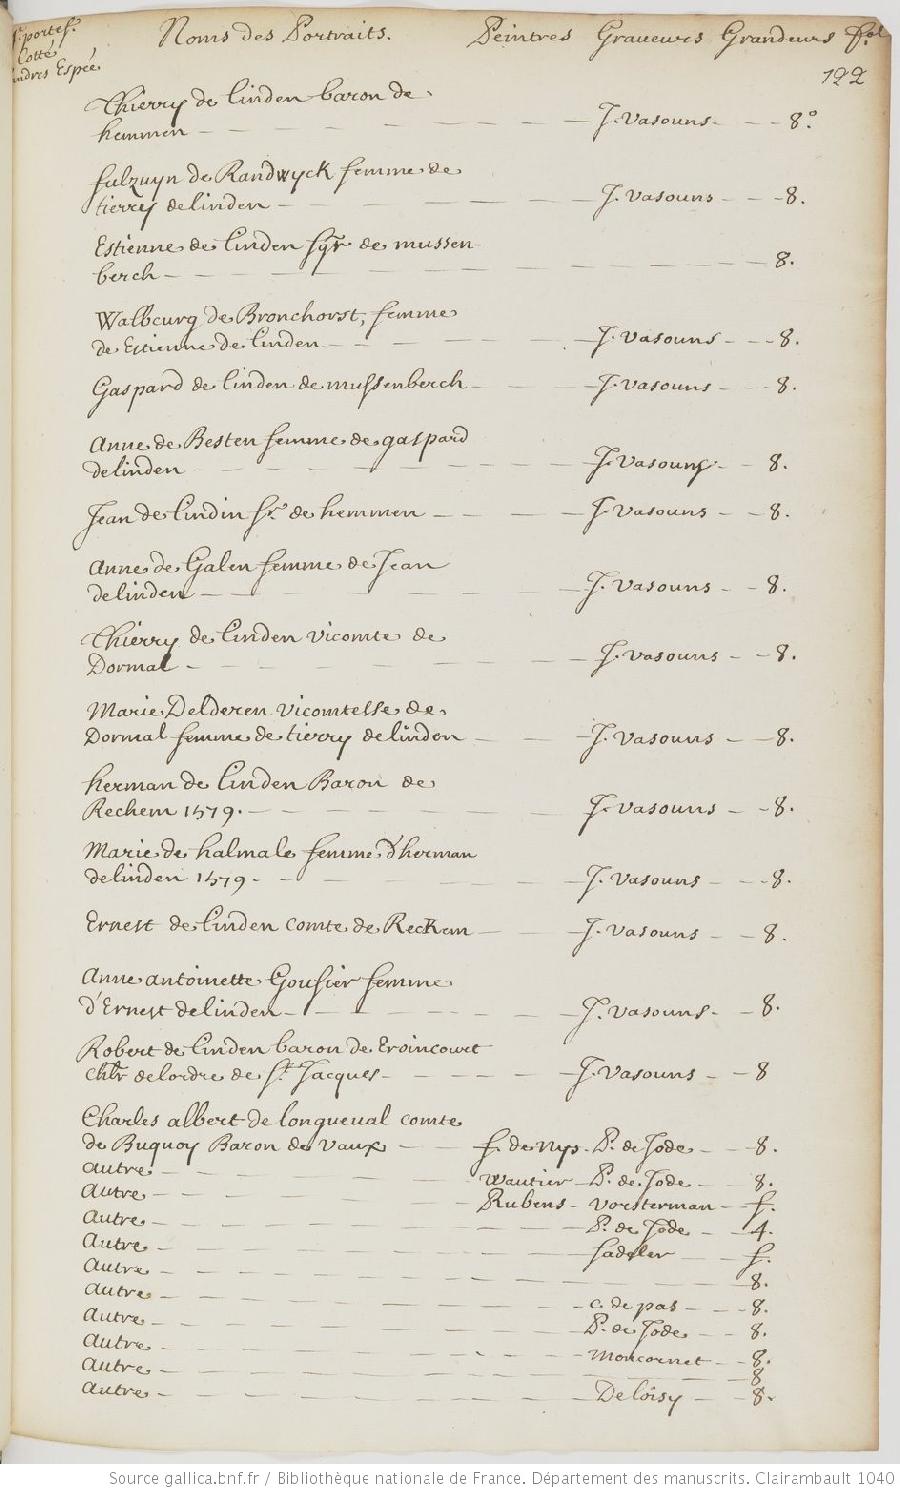 portef. Noms des Portraits. Peintres Graveurs Grandeurs fol
Cotté
Espée
122
Thierry de Linden baron de
hemmen - J. Vasouns - 8.°
fulzuyn de Randwyck femme de
tierry delinden - J. Vasouns - 8.
Estienne de Linden sgr de mussen
berch - 8.
Walbourg de Bronchorst, femme
de Estienne de Linden - J. Vasouns - 8.
Gaspard de linden de mussenberch - J. Vasouns - 8.
Anne de Besten femme de gaspard
delinden - J. Vasouns - 8.
Jean de Lindin sr. de hemmen - J. Vasouns - 8.
Anne de Galen femme de Jean
delinden - J. Vasouns - 8.
Thierry de Linden Vicomte de
Dormal - J. Vasouns - 8.
Marie Delderen Vicomtesse de
Dormal femme de tierry delinden - J. Vasouns - 8.
herman de Linden Baron de
Rechem 1579. - J. Vasouns - 8.
Marie de halmale femme d'herman
delinden 1579 - J. Vasouns - 8.
Ernest de Linden comte de Reckem - J. Vasouns - 8.
Anne antoinette Goufier femme
d'Ernest delinden - J. Vasouns - 8.
Robert de Linden baron de Froincourt
chlr delordre de St. Jacques - J. Vasouns - 8
Charles albert de longueval comte
de Buquoy Baron de Vaux - f. de nys - P. de Jode - 8.
autre - Wautier - P. de Jode - 8.
autre - Rubens - Vorsterman - f.
autre - P. de Jode - 4.
autre - sadeler - f.
autre - 8.
autre - c. de pas - 8.
autre - P. de Jode - 8.
autre - Moncornet - 8.
autre - 8
autre - De loisy - 8.
Source gallica.bnf.fr / Bibliothèque nationale de France. Département des manuscrits. Clairambault 1040